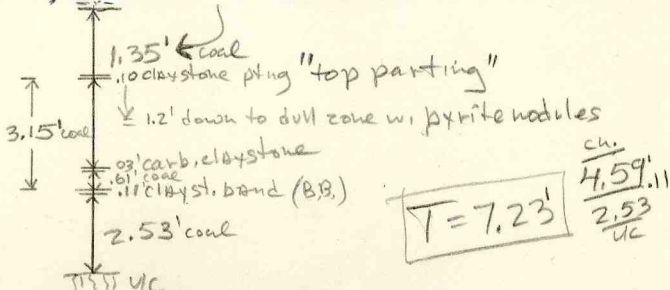 1.35' coal
.10 claystone ptng "top parting"
≃ 1.2' down to dull zone w, pyrite nodules
3.15' coal
.03' carb. claystone
.61' coal
.11' clayst. band (B.B.)
2.53' coal
T = 7.23'
ch.
4.59' .11
2.53
UC
UC